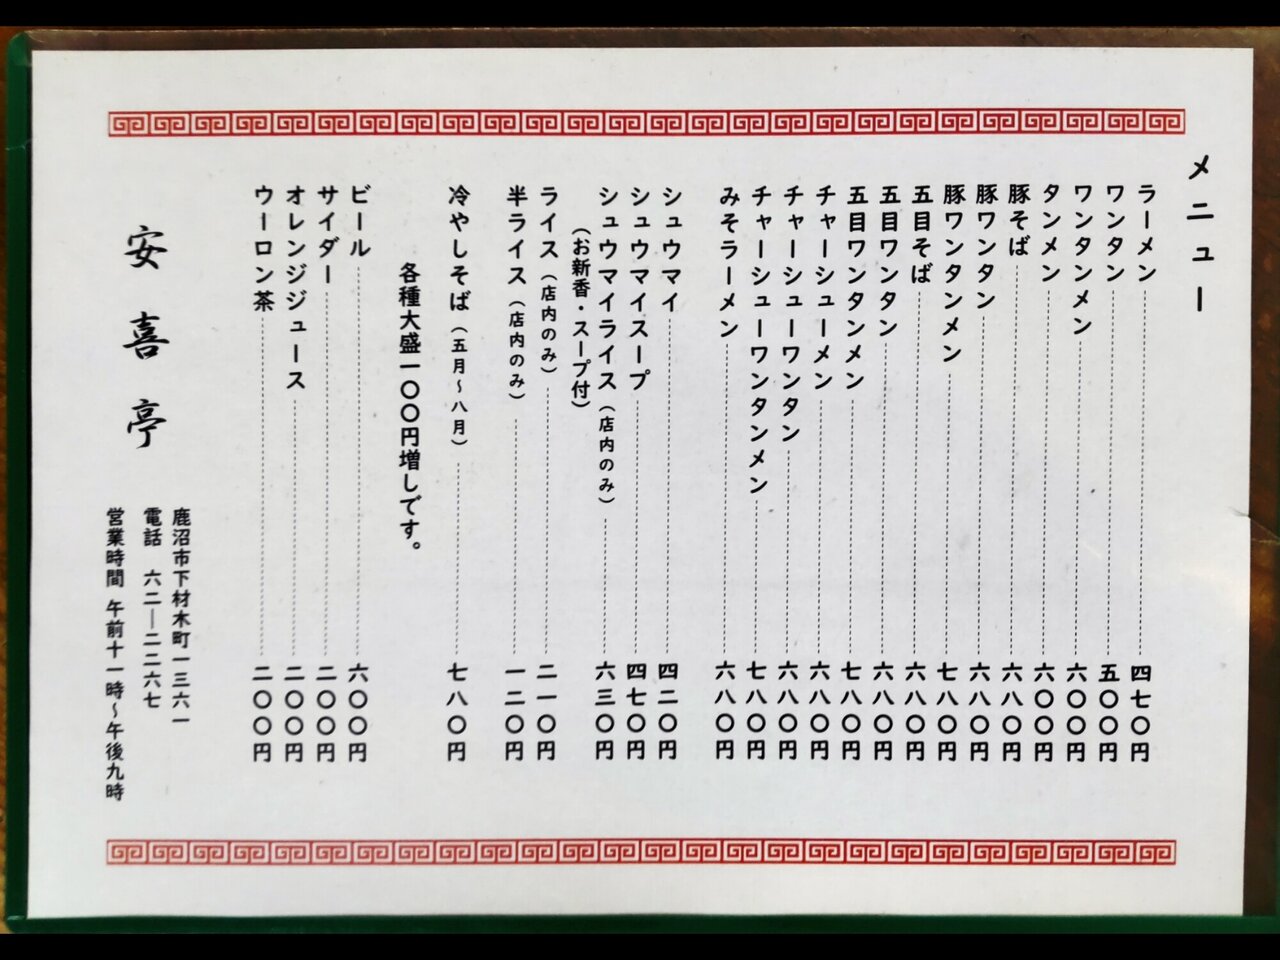 メニュー
ラーメン 四七〇円
ワンタン 五〇〇円
ワンタンメン 六〇〇円
タンメン 六〇〇円
豚そば 六八〇円
豚ワンタン 六八〇円
豚ワンタンメン 七八〇円
五目そば 六八〇円
五目ワンタン 六八〇円
五目ワンタンメン 七八〇円
チャーシューメン 六八〇円
チャーシューワンタン 六八〇円
チャーシューワンタンメン 七八〇円
みそラーメン 六八〇円
シュウマイ 四二〇円
シュウマイスープ 四七〇円
シュウマイライス(店内のみ) 六三〇円
(お新香・スープ付)
ライス(店内のみ) 二一〇円
半ライス(店内のみ) 一二〇円
冷やしそば(五月~八月) 七八〇円
各種大盛一〇〇円増しです。
ビール 六〇〇円
サイダー 二〇〇円
オレンジジュース 二〇〇円
ウーロン茶 二〇〇円
安喜亭
鹿沼市下材木町一三六一
電話 六二―二二六七
営業時間 午前十一時~午後九時